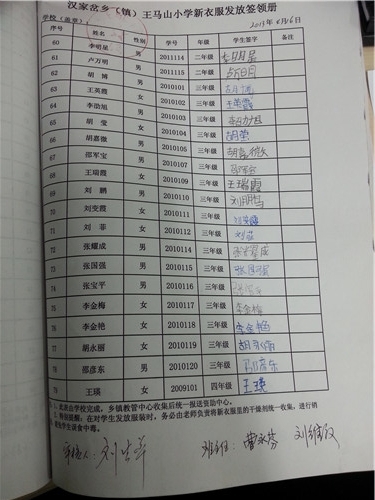 汉家岔乡（镇）王马山小学新衣服发放签领册
学校（盖章）： 2013年6月6日
序号 姓名 性别 学号 年级 学生签字 备注
60 李明星 男 2011114 二年级 李明星
61 卢万明 男 2011115 二年级
62 胡博 男 2010101 三年级
63 王英霞 女 2010102 三年级 王英霞
64 李劭旭 男 2010104 三年级
65 胡莹 女 2010105 三年级 胡莹
66 胡嘉微 男 2010106 三年级 胡嘉微
67 邵军宝 男 2010107 三年级
68 王瑞霞 女 2010109 三年级 王瑞霞
69 刘鹏 男 2010110 三年级 刘鹏
70 刘变霞 女 2010111 三年级 刘变霞
71 刘菲 女 2010112 三年级 刘菲
72 张耀成 男 2010114 三年级 张耀成
73 张国强 男 2010115 三年级 张国强
74 张宝平 男 2010116 三年级
75 李金梅 女 2010117 三年级 李金梅
76 李金艳 女 2010118 三年级 李金艳
77 胡永丽 女 2010119 三年级 胡永丽
78 邵彦东 男 2010120 三年级 邵彦东
79 王瑛 女 2009101 四年级 王瑛
1、此表由学校完成，乡镇教管中心收集后统一报送资助中心。
2、特别提醒：在对学生发放服装时，务必由老师负责将新衣服里的干燥剂统一收集，进行销
毁，避免学生误食中毒。
班主任：曹永芬